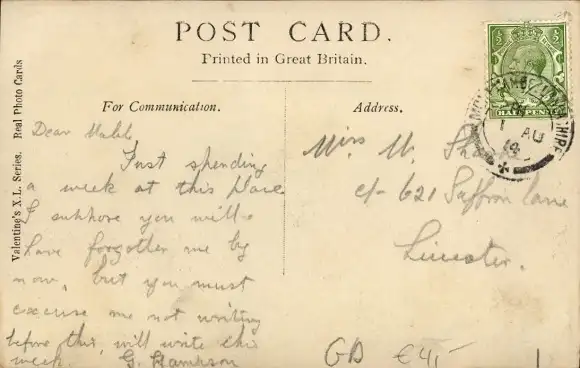 POST CARD.
Printed in Great Britain.
For Communication.
Address.
Valentine's X.L. Series. Real Photo Cards
Dear Mabel
Just spending
a week at this place
I suppose you will
have forgotten me by
now, but you must
excuse me not writing
before this, will write this
week. G.
Miss M.
c/- 621 Saffron Lane
Leicester.
HALF PENNY
1 AU
14
GB €4,-